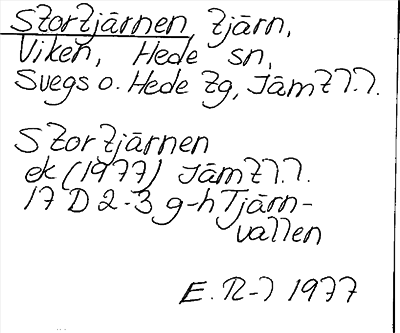 Stortjärnen, tjärn,
Viken, Hede sn,
Svegs o. Hede tg, Jämtl.l.
Stortjärnen
ek (1977) Jämtl.l.
17 D 2-3 g-h Tjärn-
vallen
E. R-l 1977